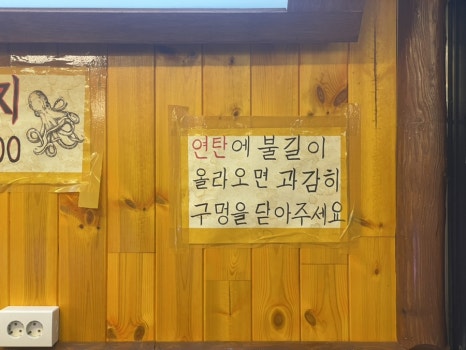 지
00
연탄에 불길이
올라오면 과감히
구멍을 닫아주세요